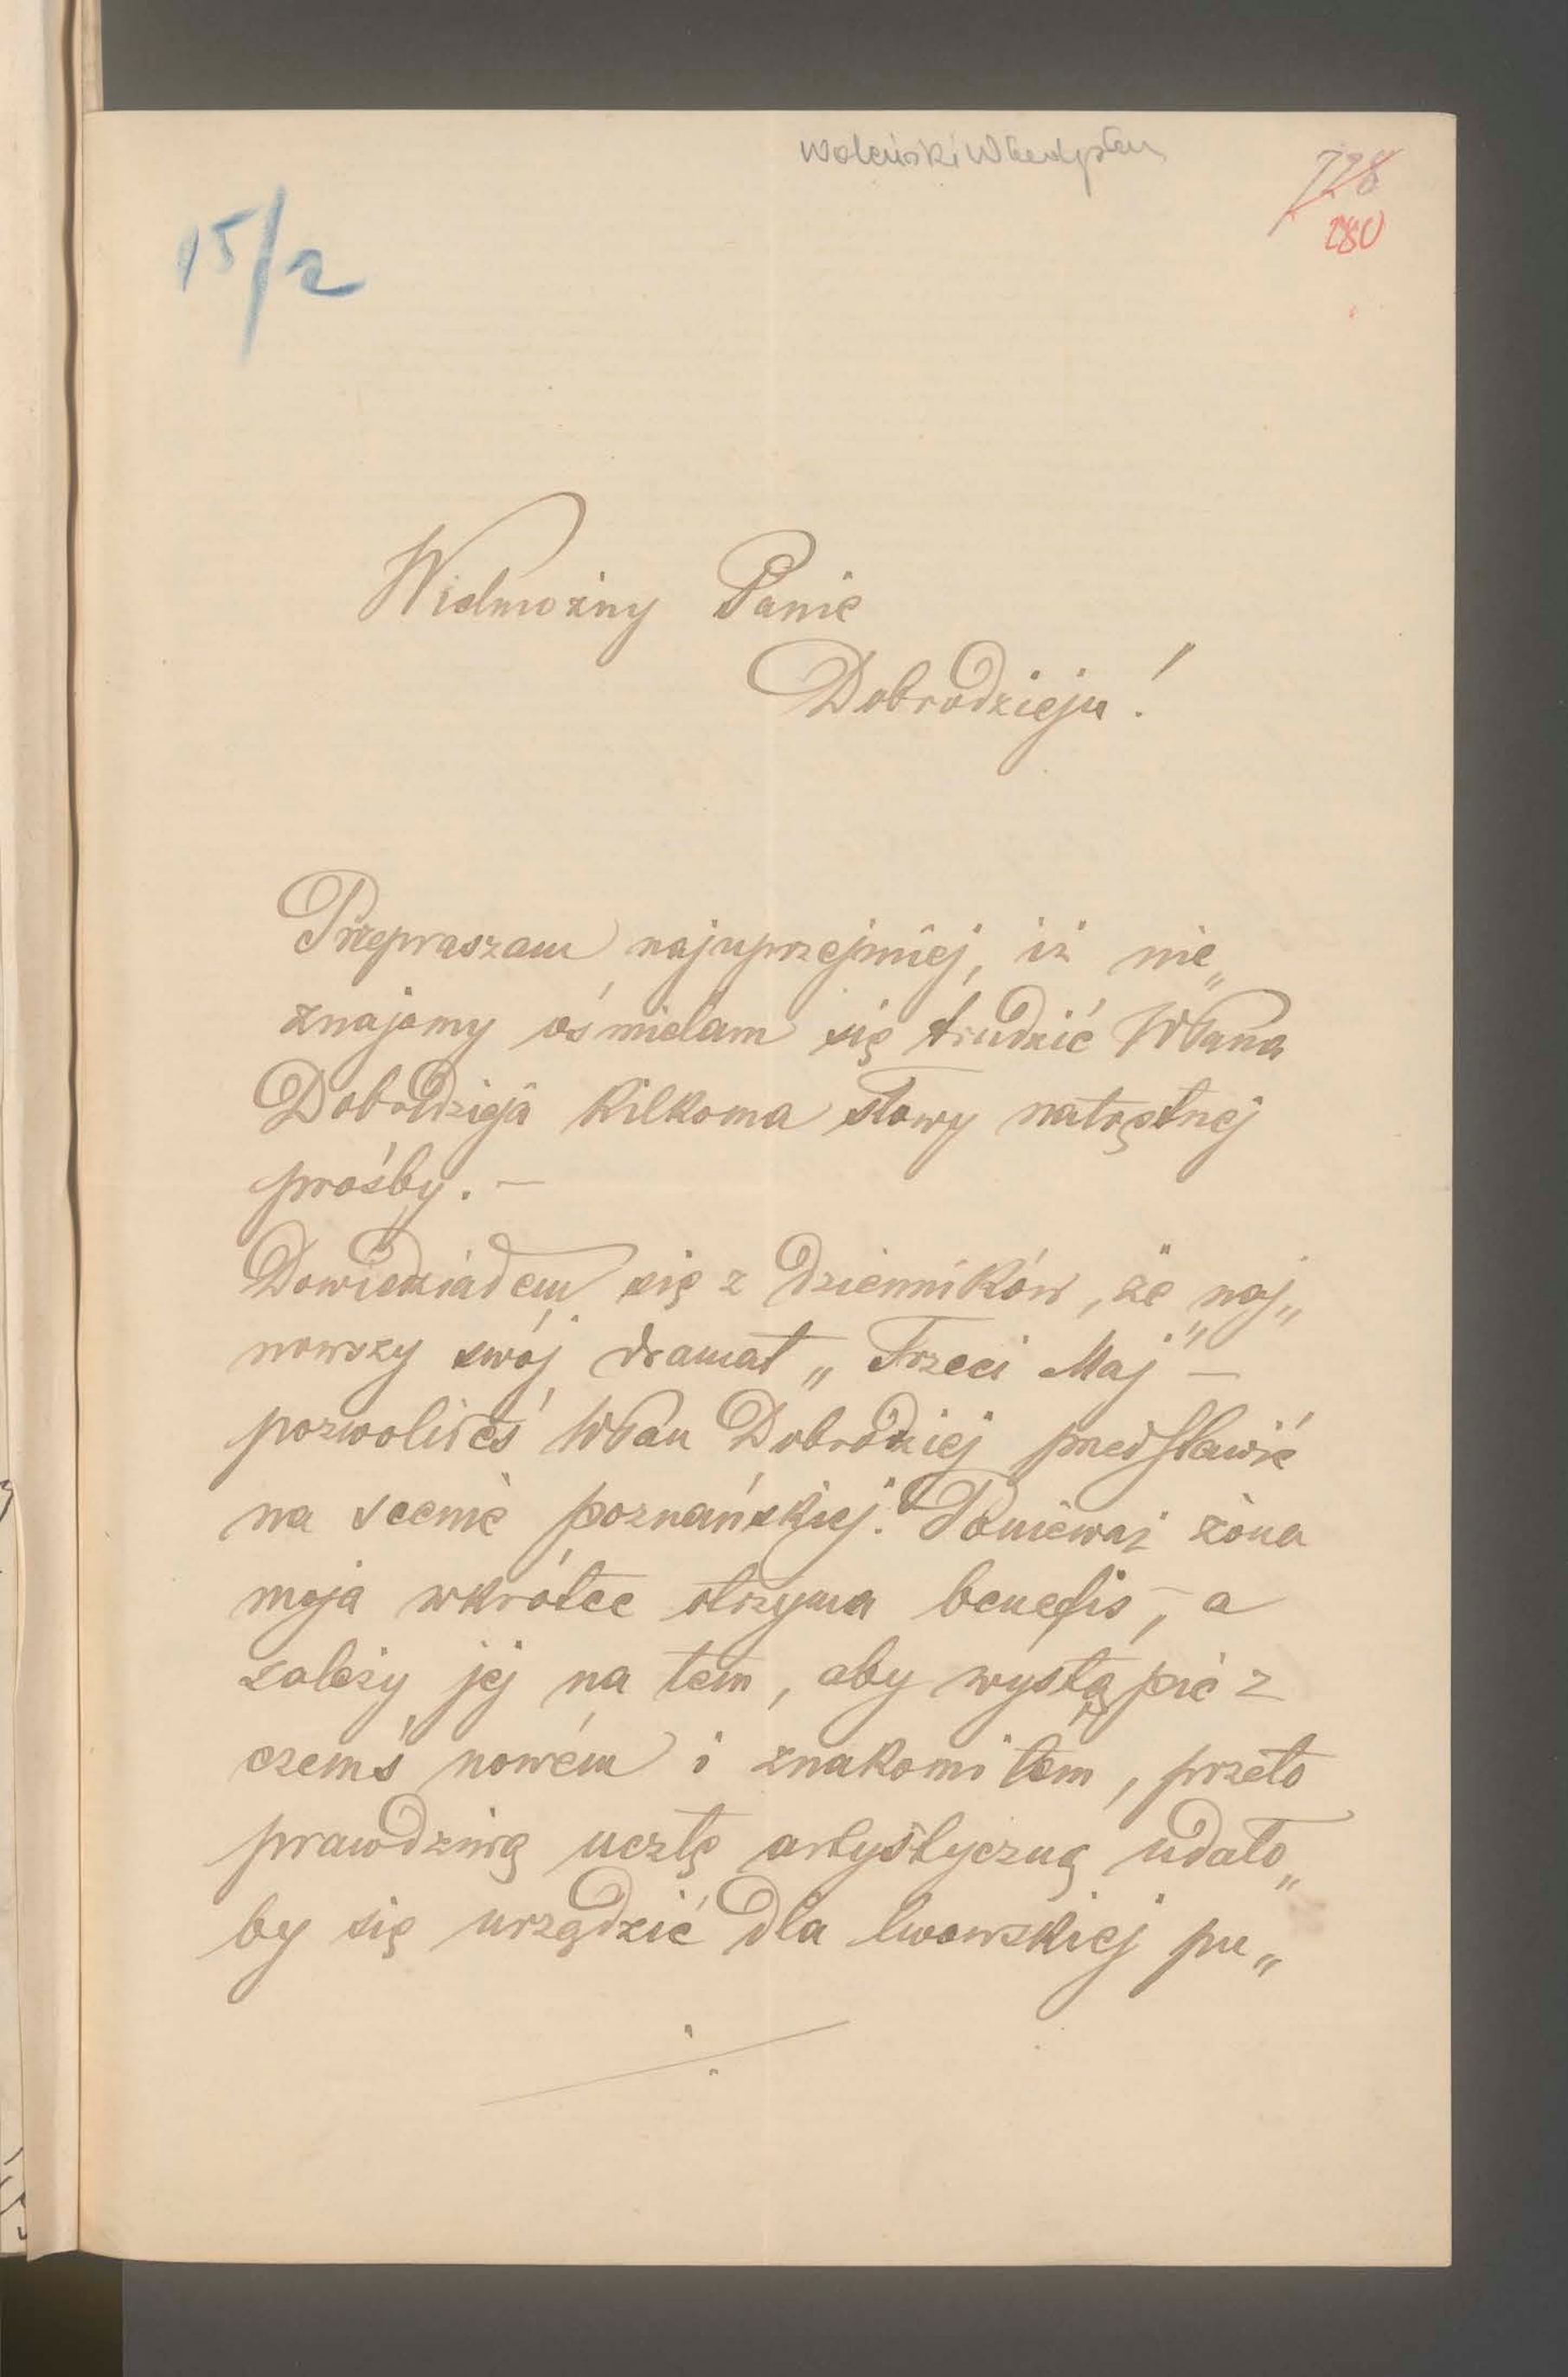 Woleński Władysław
728
280
15/2
Wielmożny Panie
Dobrodzieju!
Przepraszam najuprzejmiej, iż nie„
znajomy ośmielam się trudzić WPana
Dobrodzieja kilkoma słowy natrętnej
prośby. —
Dowiedziałem się z dzienników, że naj„
nowszy swój dramat „Trzeci Maj" —
pozwoliłeś WPan Dobrodziej przedstawić
na scenie poznańskiej. Ponieważ żona
moja wkrótce otrzyma benefis, — a
zależy jej na tem, aby wystąpić z
czemś nowém i znakomitém, przeto
prawdziwą ucztę artystyczną udało„
by się urządzić dla lwowskiej pu„